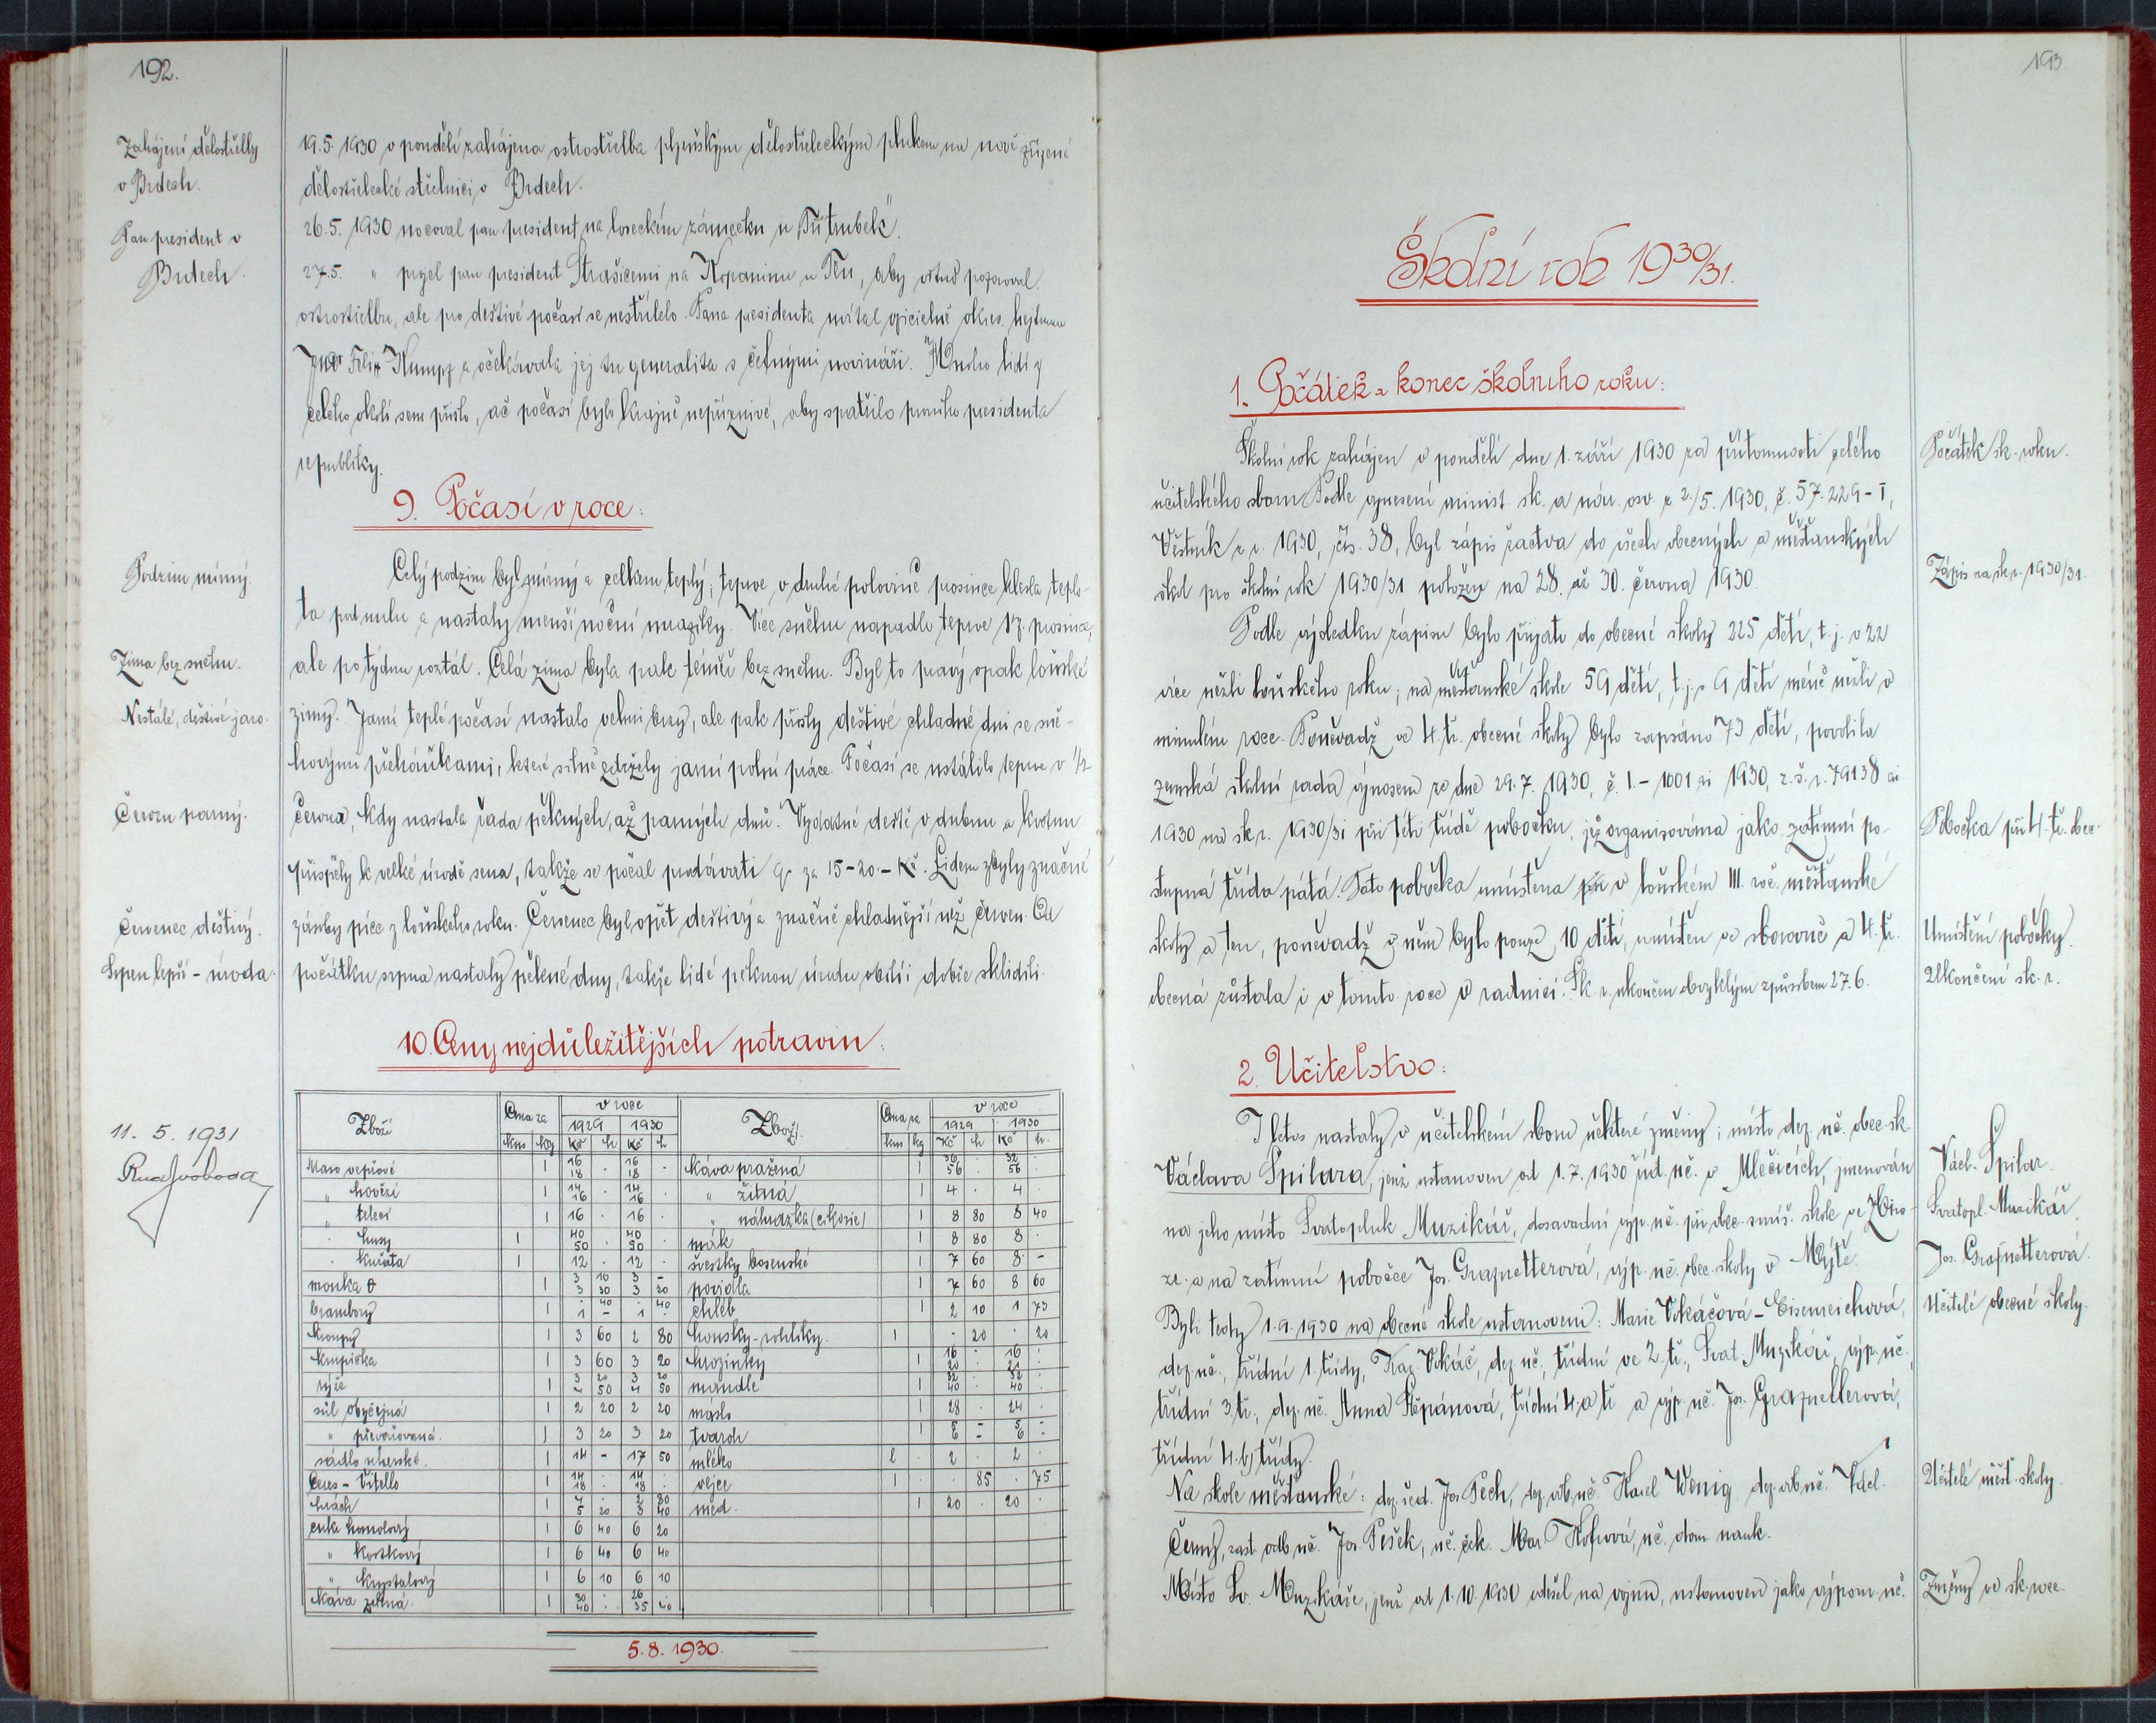 192.
Zahájení dělostřelby
v Brdech.
Pan president v
Brdech.
19.5. 1930 v pondělí zahájena ostrostřelba plzeňským dělostřeleckým plukem na nově zřízené
dělostřelecké střelnici v Brdech.
26.5. 1930 nocoval pan president na loveckém zámečku u "Tří trubek".
27.5. " projel pan president Strašicemi na Kopaninu u Těn, aby odtud pozoroval
ostrostřelbu, ale pro deštivé počasí se nestřílelo. Pana presidenta uvítal oficielně okres. hejtman
Filip Kumpf a očekávala jej tu generalita s četnými novináři. Mnoho lidí z
celého okolí sem přišlo, ač počasí bylo krajně nepříznivé, aby spatřilo prvního presidenta
republiky.
9. Počasí v roce:
Podzim mírný.
Zima bez sněhu.
Nestálé, deštivé jaro.
Červen parný.
Červenec deštivý.
Srpen lepší - úroda.
Celý podzim byl mírný a celkem teplý; teprve v druhé polovině prosince klesla teplo-
ta pod nulu a nastaly menší noční mrazíky. Více sněhu napadlo teprve 17. prosince,
ale po týdnu roztál. Celá zima byla pak téměř bez sněhu. Byl to pravý opak loňské
zimy. Jarní teplé počasí nastalo velmi brzy, ale pak přišly deštivé chladné dni se sně-
hovými přeháňkami, které silně zdržely jarní polní práce. Počasí se ustálilo teprve v 1/2
června, kdy nastala řada pěkných, až parných dnů. Vydatné deště v dubnu a květnu
přispěly k velké úrodě sena, takže se počal prodávati q za 15-20.- Kč. Lidem zbyly značné
zásoby píce z loňského roku. Červenec byl opět deštivý a značně chladnější než červen. Od
počátku srpna nastaly pěkné dny, takže lidé pěknou úrodu obilí i dobře sklidili.
10. Ceny nejdůležitějších potravin:
11. 5. 1931
Rud Svoboda
Zboží Cena za v roce Zboží Cena za v roce
1929 1930 1929 1930
kus kg Kč h Kč h kus kg Kč h Kč h
Maso vepřové 1 16 18 . 16 18 . káva pražená 1 36 56 . 32 56 .
" hovězí 1 14 16 . 14 16 . " žitná 1 4 . 4 .
" telecí 1 16 . 16 . " náhražka (cikorie) 1 8 80 8 40
" husy 1 40 50 . 40 50 . mák 1 8 80 8 .
" kuřata 1 12 . 12 . švestky bosenské 1 7 60 8 -
mouka 0 1 3 10 3 30 3 - 3 20 povidla 1 7 60 8 60
brambory 1 . 40 1 - . 40 1 . chléb 1 2 10 1 73
kroupy 1 3 60 2 80 housky - rohlíky. 1 . 20 . 20
krupička 1 3 60 3 20 hrozinky 1 16 20 . 16 24 .
rýže 1 3 20 4 50 3 20 4 50 mandle 1 32 40 . 32 40 .
sůl obyčejná 1 2 20 2 20 máslo 1 28 . 24 .
" převařovaná. 1 3 20 3 20 tvaroh 1 5 6 - 5 6 -
sádlo uherské. 1 14 - 17 50 mléko l . 2 . 2 .
Ceres - Vitello 1 14 18 . 14 18 . vejce 1 . . 85 . 75
hrách 1 4 . 5 20 2 80 3 40 med. 1 20 . 20 .
cukr homolový 1 6 40 6 20
" kostkový 1 6 40 6 40
" krystalový 1 6 10 6 10
Káva zelená. 1 30 40 . 26 . 35 40
5.8. 1930.
193
Školní rok 1930/31.
1. Počátek a konec školního roku:
Školní rok zahájen v pondělí dne 1. září 1930 za přítomnosti celého
učitelského sboru. Podle vynesení minist. šk. a nár. osv. z 2./5. 1930, č. 57.229-I,
Věstník z r. 1930, čís. 38, byl zápis žactva do všech obecných a měšťanských
škol pro školní rok 1930/31 položen na 28. až 30. června 1930.
Podle výsledku zápisu bylo přijato do obecné školy 225 dětí, t.j. o 22
více nežli loňského roku; na měšťanské škole 59 dětí, t.j. o 9 dětí méně nežli v
minulém roce. Poněvadž ve 4. tř. obecné školy bylo zapsáno 73 dětí, povolila
zemská školní rada výnosem ze dne 29.7. 1930, č. I.- 1001 ai 1930, z.š.r. 79138 ai
1930 na šk.r. 1930/31 při této třídě pobočku, jež organisována jako zatímní po-
stupná třída pátá. Tato pobočka umístěna v loňském III. roč. měšťanské
školy a ten, poněvadž v něm bylo pouze 10 dětí, umístěn ve sborovně a 4. tř.
obecná zůstala i v tomto roce v radnici. Šk. r. ukončen obvyklým způsobem 27.6.
Počátek šk. roku.
Zápis na šk. r. 1930/31.
Pobočka při 4. tř. obec.
Umístění pobočky.
Ukončení šk. r.
2. Učitelstvo:
I letos nastaly v učitelském sboru některé změny; místo def. uč. obec. šk.
Václava Špilara, jenž ustanoven od 1.7. 1930 říd. uč. v Mlečicích, jmenován
na jeho místo Svatopluk Muzikář, dosavadní výp. uč. při obec. smíš. škole ve
a na zatímní pobočce Jos. Grajnetterová, výp. uč. obec. školy v Mýtě.
Byli tedy 1.9. 1930 na obecné škole ustanoveni: Marie Vokáčová - Eisenreichová,
def. uč., třídní 1. třídy, Kaz. Vokáč, def. uč., třídní ve 2. tř., Svat. Muzikář, výp. uč.,
třídní 3. tř., def. uč. Anna Štěpánová, třídní 4.a tř. a výp. uč. Jos. Grajnetterová,
třídní 4. b) třídy.
Na škole měšťanské: def. řed. Jos. Pech, def. odb. uč. Karel Wenig, def. odb. uč. Václ.
Černý, zast. odb. uč. Jos. Pešek, uč. ček. Mar. uč. dom. nauk.
Místo Sv. Muzikáře, jenž od 1.10. 1930 odešel na vojnu, ustanoven jako výpom. uč.
Václ. Špilar.
Svatopl. Muzikář.
Jos. Grajnetterová.
Učitelé obecné školy.
Učitelé měšť. školy.
Změny ve šk. roce.